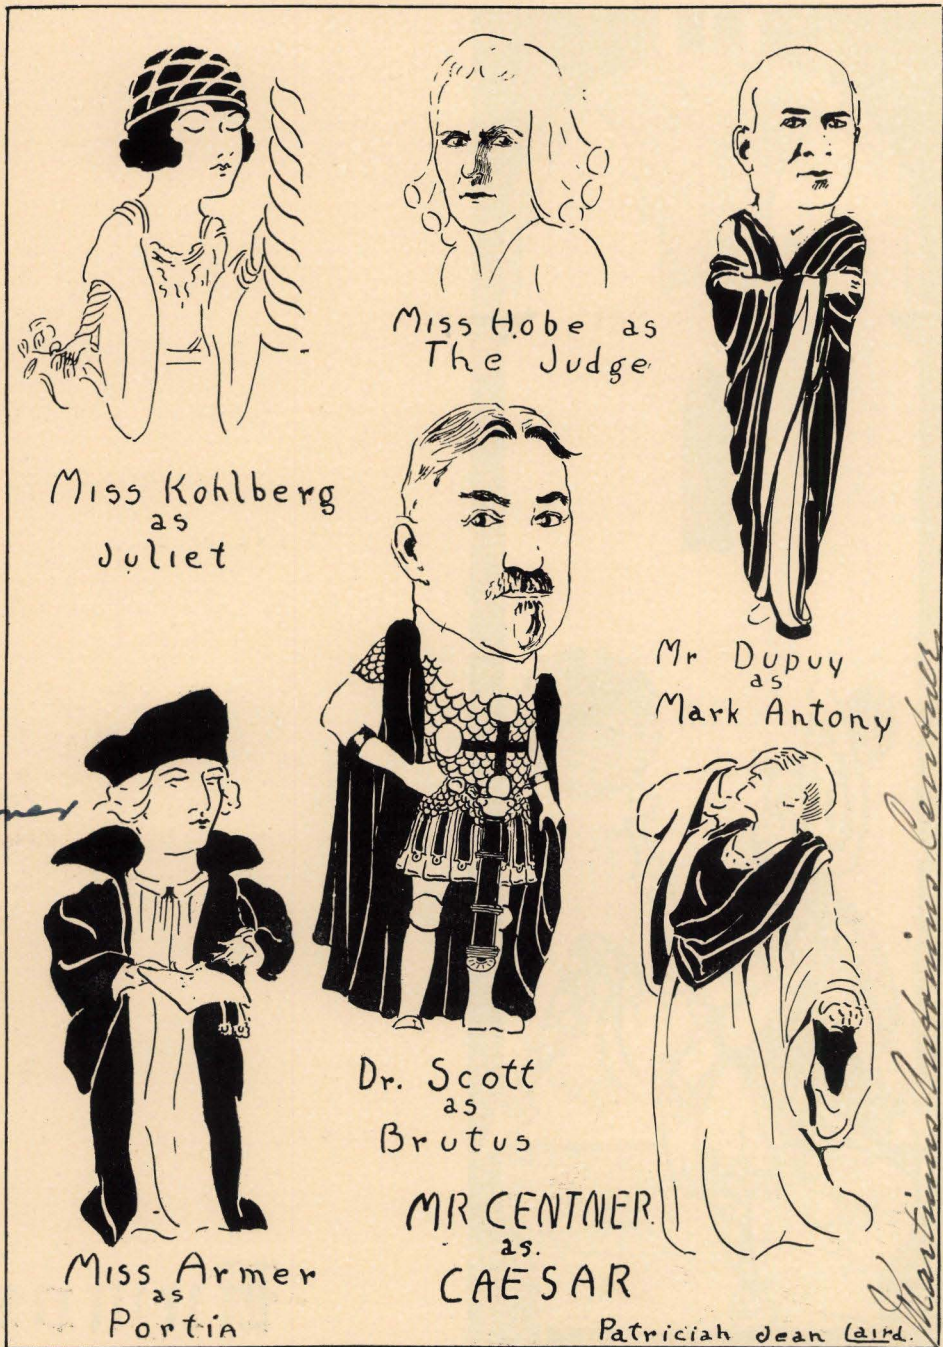 Miss Hobe as
The Judge
Miss Kohlberg
as
Juliet
Mr Dupuy
as
Mark Antony
Dr. Scott
as
Brutus
Miss Armer
as
Portia
MR CENTNER.
as.
CAESAR
Patriciah Jean Laird.
Martinus Antonius Centner
ner